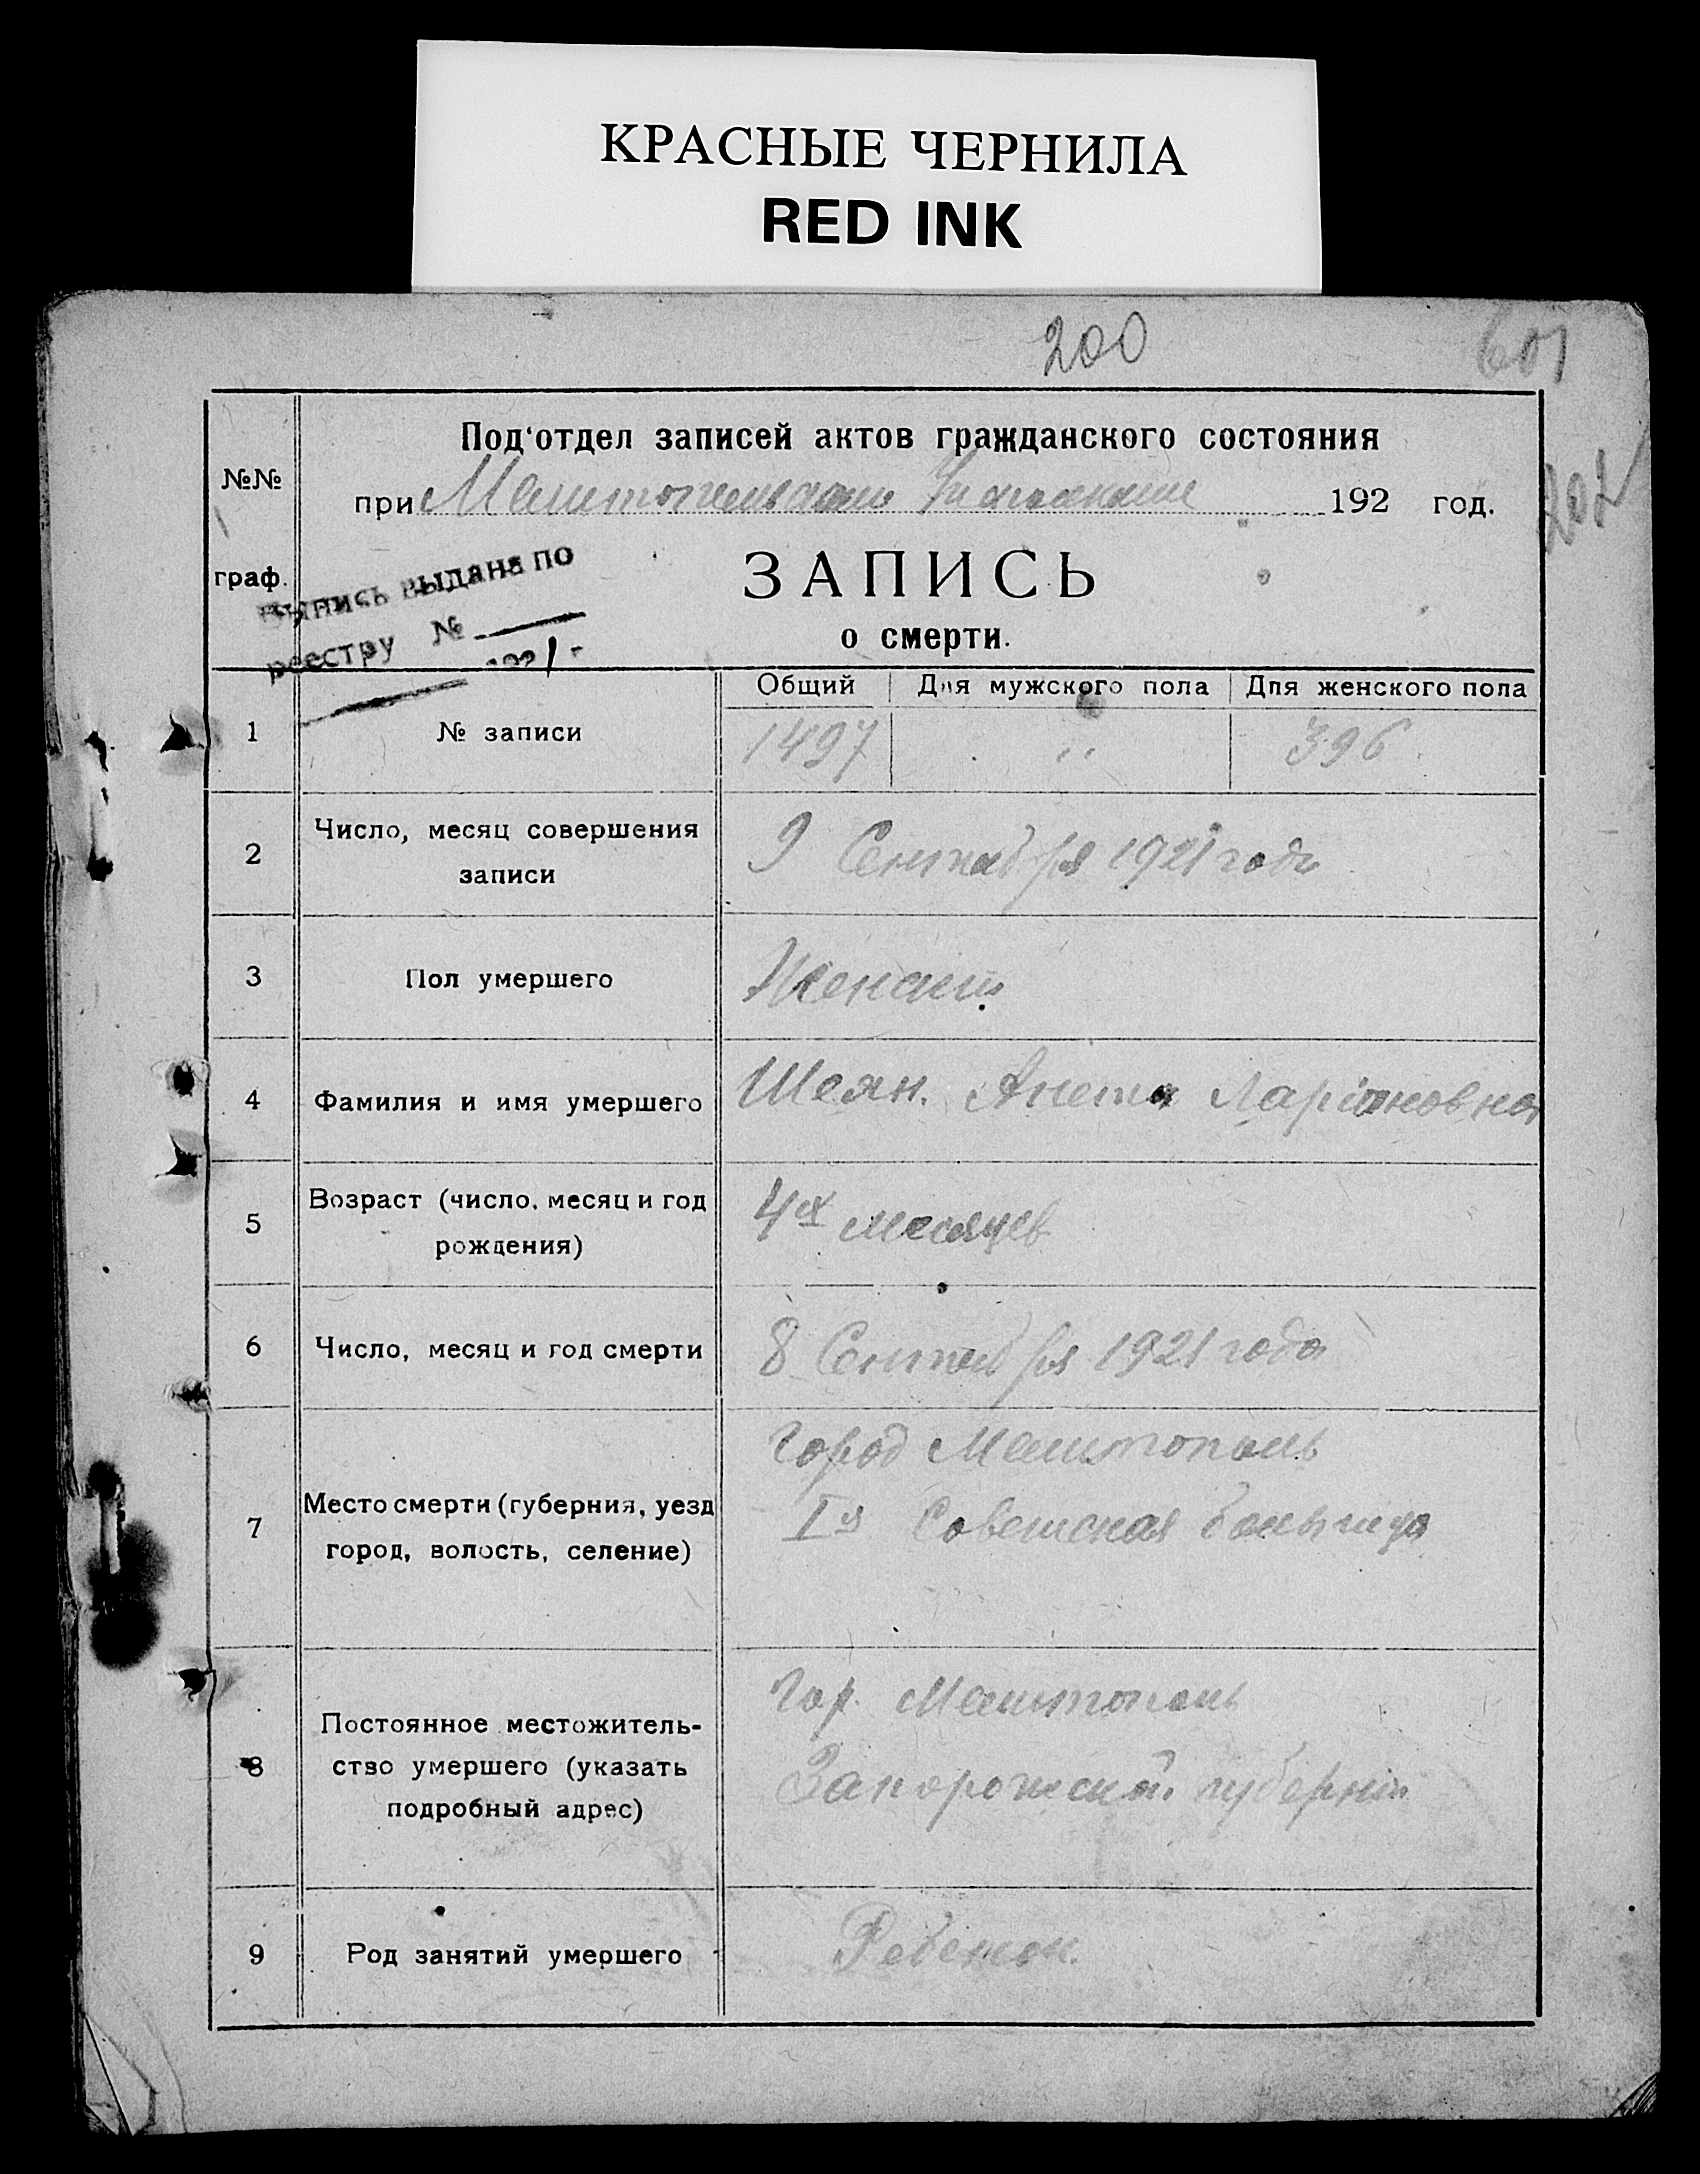 КРАСНЫЕ ЧЕРНИЛА
RED INK
200
601
202
Под'отдел записей актов гражданского состояния
№№
при Мелитопольском 192 год.
граф.
Выпись выдана по
реестру №
ЗАПИСЬ
о смерти.
Общий Для мужского пола Для женского пола
1 № записи 1497 " 396
2 Число, месяц совершения
записи
9 Сентября 1921 года
3 Пол умершего Женский
4 Фамилия и имя умершего Шеян. Анета Ларионовна
5 Возраст (число, месяц и год
рождения)
4х месяцев
6 Число, месяц и год смерти 8 Сентября 1921 года
7 Место смерти (губерния, уезд
город, волость, селение)
город Мелитополь
Iя Советская больница
8 Постоянное местожитель-
ство умершего (указать
подробный адрес)
Гор. Мелитополь
Запорожской губернии
9 Род занятий умершего Ребенок.